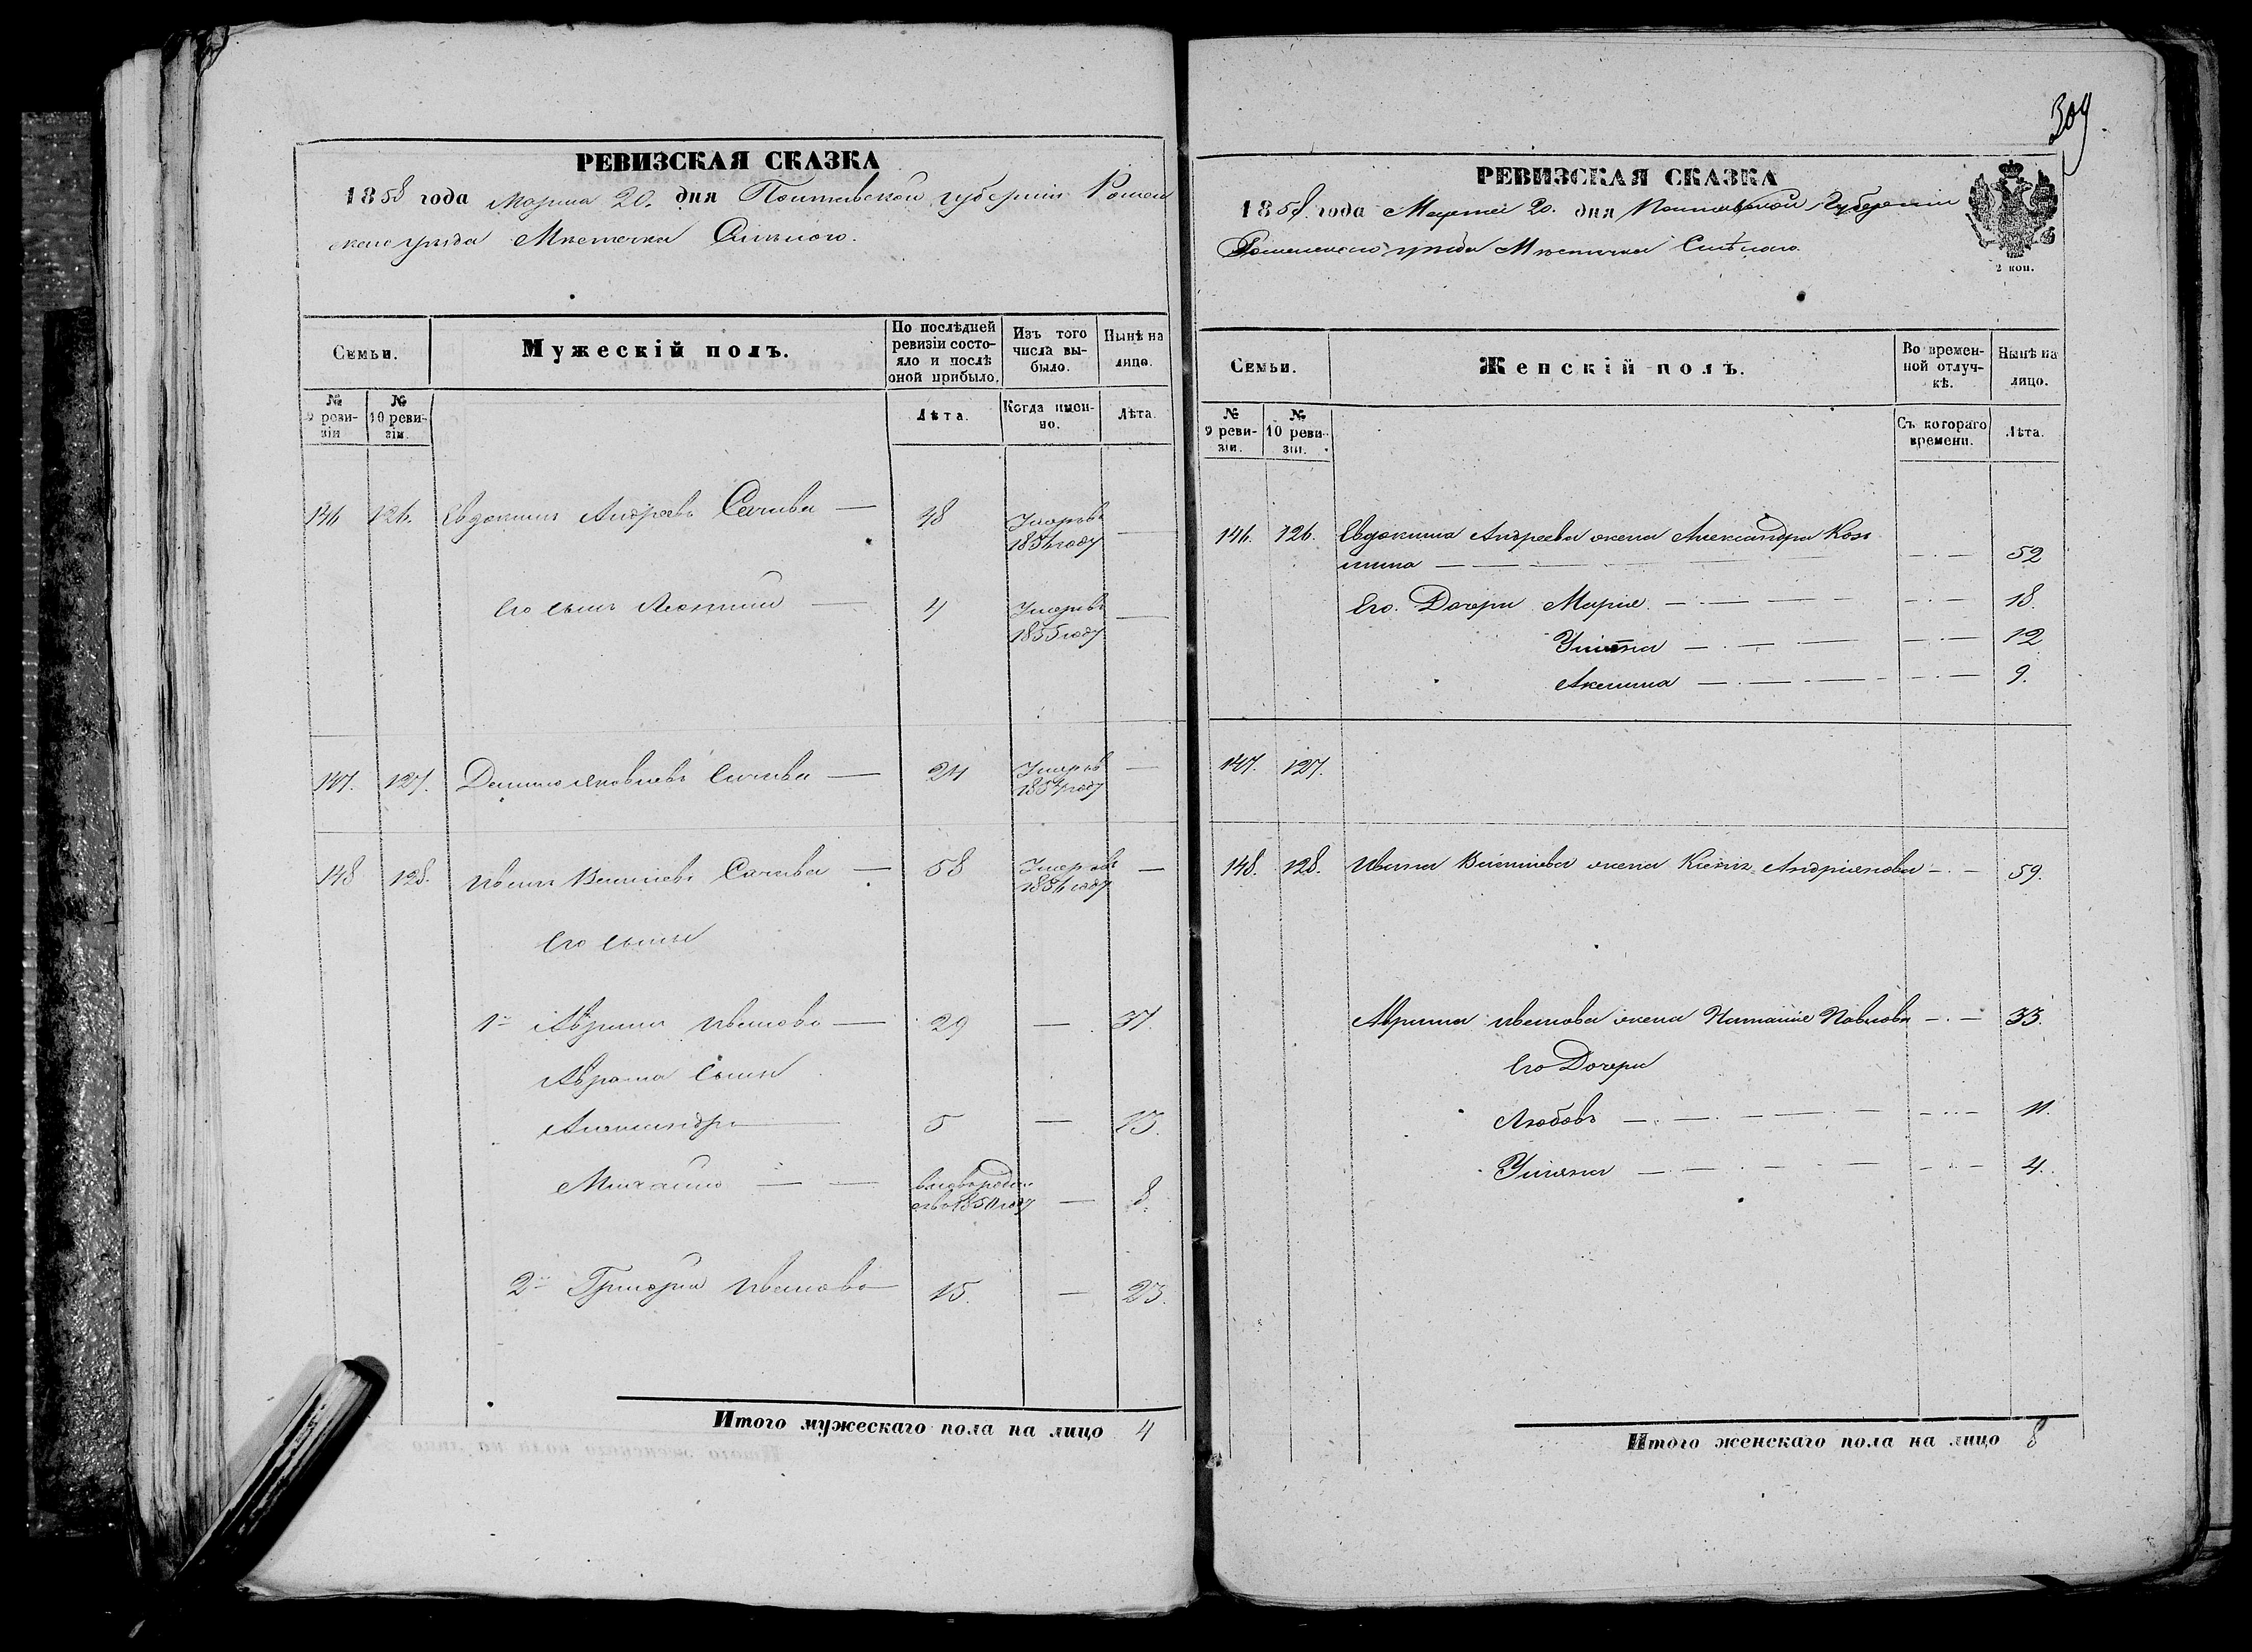 309
РЕВИЗСКАЯ СКАЗКА
1858 года Марта 20. дня Полтавской губернiи Ромен
скаго уѣзда Мѣстечка Смѣлого.
Семьи.
Мужескiй полъ.
По послѣдней ревизiи состояло и послѣ оной прибыло.
Изъ того числа выбыло.
Нынѣ на лицо.
№ 9 ревизiи
№ 10 ревизiи.
Лѣта.
Когда именно.
Лѣта.
146 126. Евдокимъ Андреевъ — 48 Умеръ въ 1856 году —
Его сынъ — 4 Умеръ въ 1855 году —
147. 127. Яковлевъ — 24 Умеръ въ —
148 128. Иванъ — 58 Умеръ въ —
Его сыны
1й Аврамъ Ивановъ — 29 — 37.
Аврама сыны
Александръ 5 — 13.
Михайло — — 1850 году — 8.
2й Григорий Ивановъ 15. — 23.
Итого мужескаго пола на лицо 4
РЕВИЗСКАЯ СКАЗКА
1858. года Марта 20. дня Полтавской Губернiи
Роменского уѣзда Мѣстечка Смѣлого.
2 коп.
Семьи.
Женскiй полъ.
Во временной отлучкѣ.
Нынѣ на лицо.
№ 9 ревизiи.
№ 10 ревизiи.
Съ котораго времени.
Лѣта.
146. 126. Евдокима Андреева жена Александра Козь
мина — 52
Его Дочери Марiя — 18.
Ульяна — 12
Акелина — 9.
147. 127.
148. 128. Ивана жена Андрiянова — 59.
Аврама Иванова жена Наталiя Павлова — 33.
Его Дочери
Любовь — 11.
Ульяна — 4.
Итого женскаго пола на лицо 8